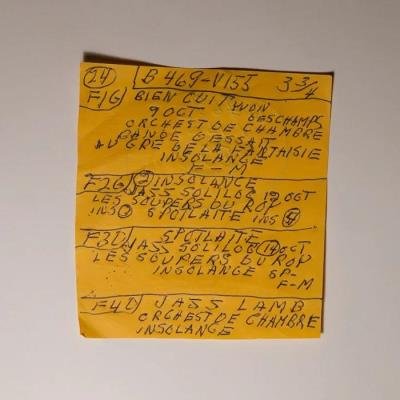 24 B 469-V155 3 3/4
F1G BIEN CUIT YVON
9 OCT DESCHAMPS
ORCHEST DE CHAMBRE
BANDE D'ESSAI
AU GRE DE LA FANTAISIE
INSOLANGE
F-M
F2G INSOLANGE
JASS SOLILOG 19 OCT
LES SOUPERS DU ROY
INS SPOTLAITE INS
F3D SPOTLAITE
JASS SOLILOG 14 OCT
LES SOUPERS DU ROY
INSOLANGE SP-
F-M
F4D JASS LAMB
ORCHEST DE CHAMBRE
INSOLANGE